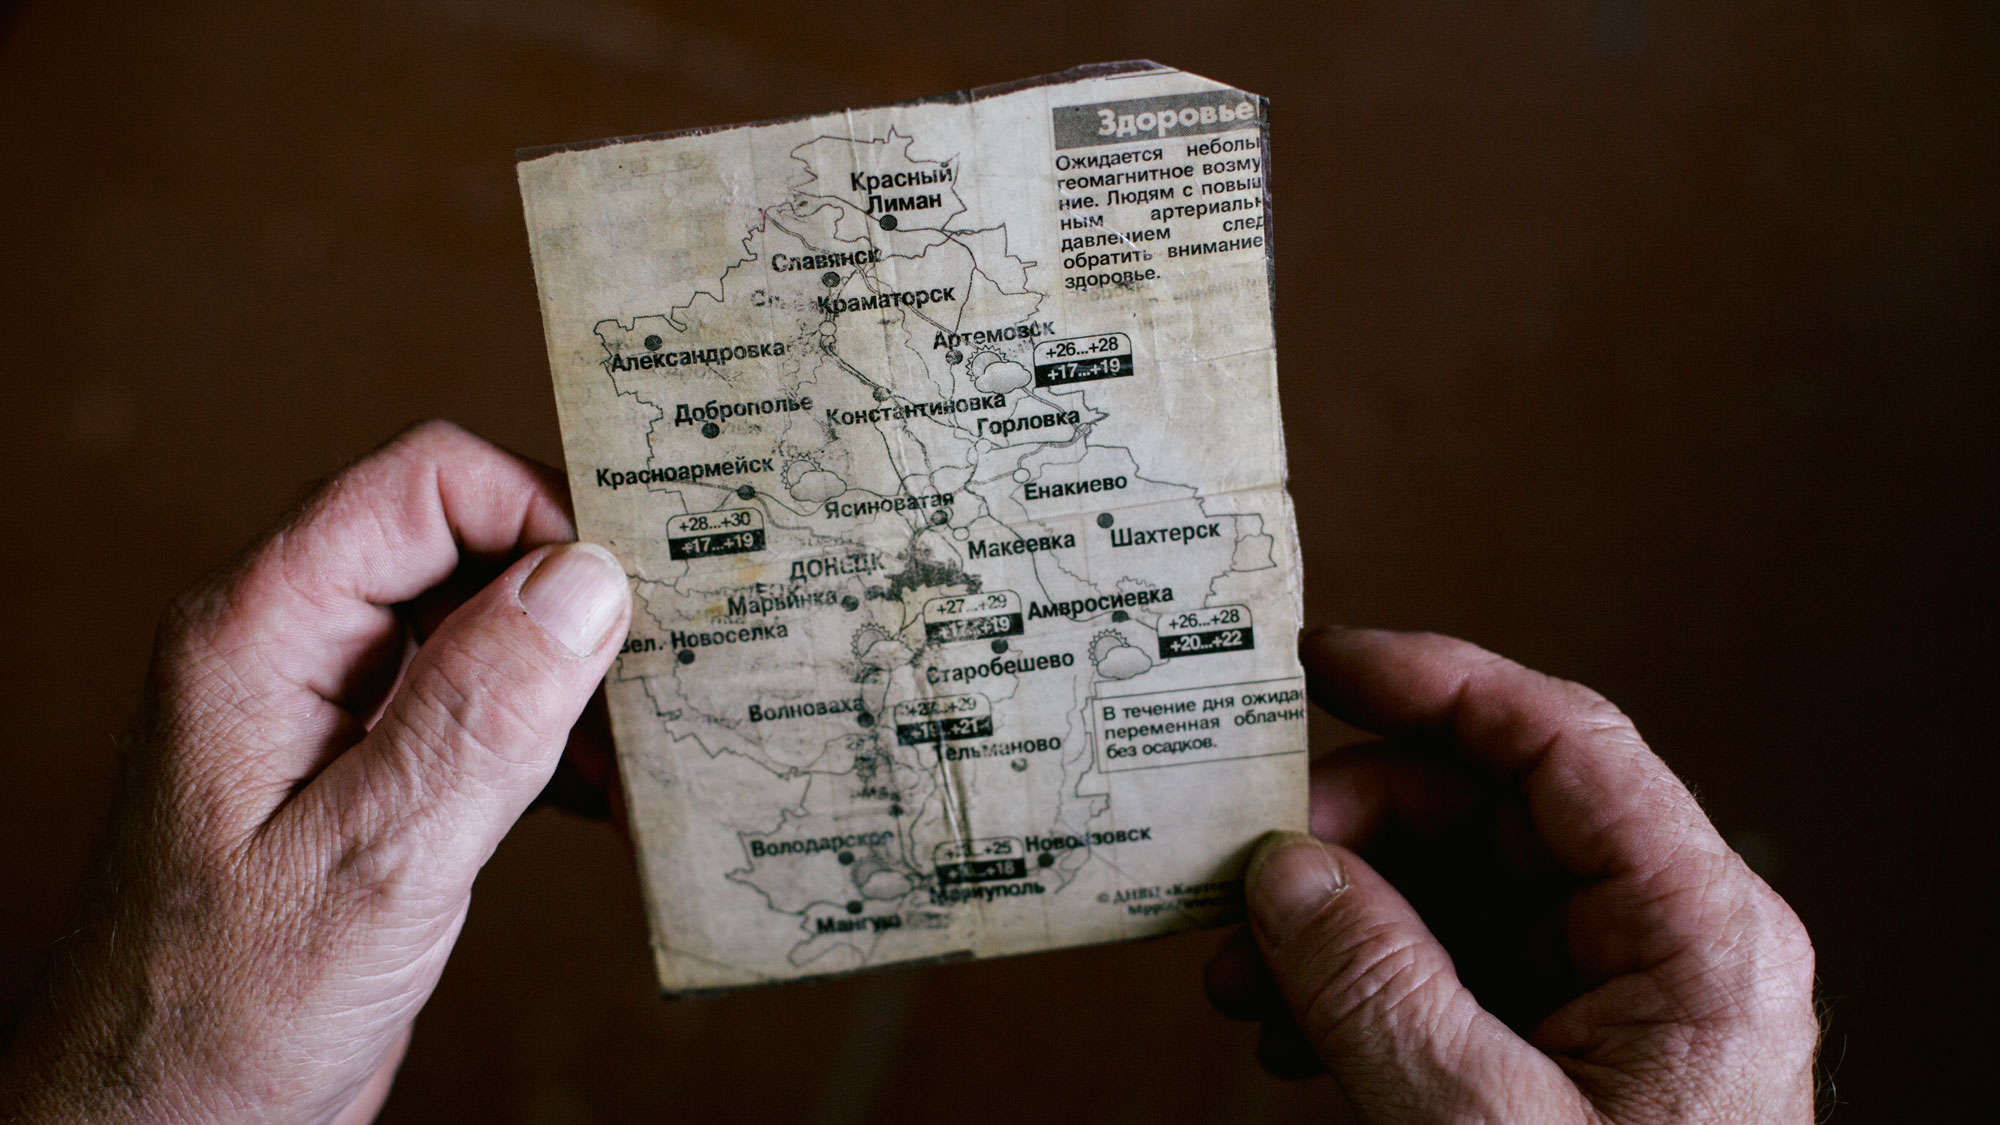 Здоровье
Ожидается неболь
геомагнитное возму
ние. Людям с повыш
ным артериальн
давлением след
обратить внимание
здоровье.
Красный
Лиман
Славянск
Краматорск
Артемовск
+26...+28
+17...+19
Александровка
Доброполье
Константиновка
Горловка
Красноармейск
Енакиево
Ясиноватая
+28...+30
+17...+19
Макеевка
Шахтерск
ДОНЕЦК
Марьинка
+27...+29
Амвросиевка
+26...+28
+20...+22
Вел. Новоселка
Старобешево
Волноваха
В течение дня ожида
переменная облачно
без осадков.
Тельманово
Володарское
Новоазовск
Мариуполь
Мангуш